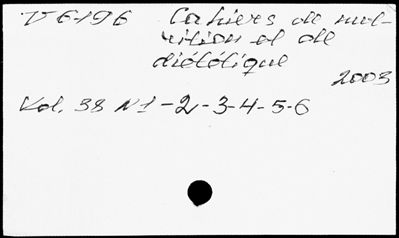 V 6-196 Cahiers de nut-
rition et de
diététique
2003
Vol. 38 N1-2-3-4-5-6